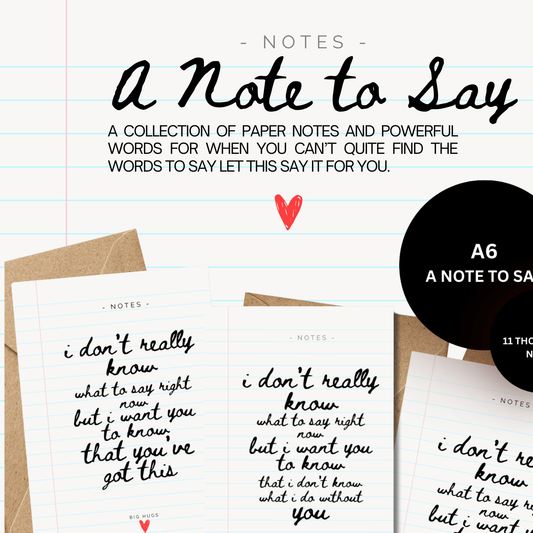 - NOTES -
A Note to Say
A COLLECTION OF PAPER NOTES AND POWERFUL
WORDS FOR WHEN YOU CAN'T QUITE FIND THE
WORDS TO SAY LET THIS SAY IT FOR YOU.
A6
A NOTE TO SA
11 THO
N
- NOTES -
i don't really
know
what to say right
now
but i want you
to know
that you've
got this
BIG HUGS
- NOTES -
i don't really
know
what to say right
now
but i want you
to know
that i don't know
what i do without
you
- NOTES
i don't re
know
what to say r
now
but i want y